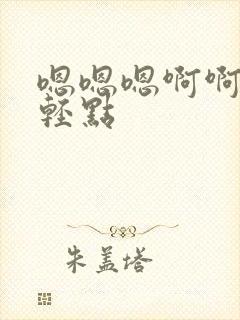 嗯嗯嗯啊啊
輕點
朱盖塔